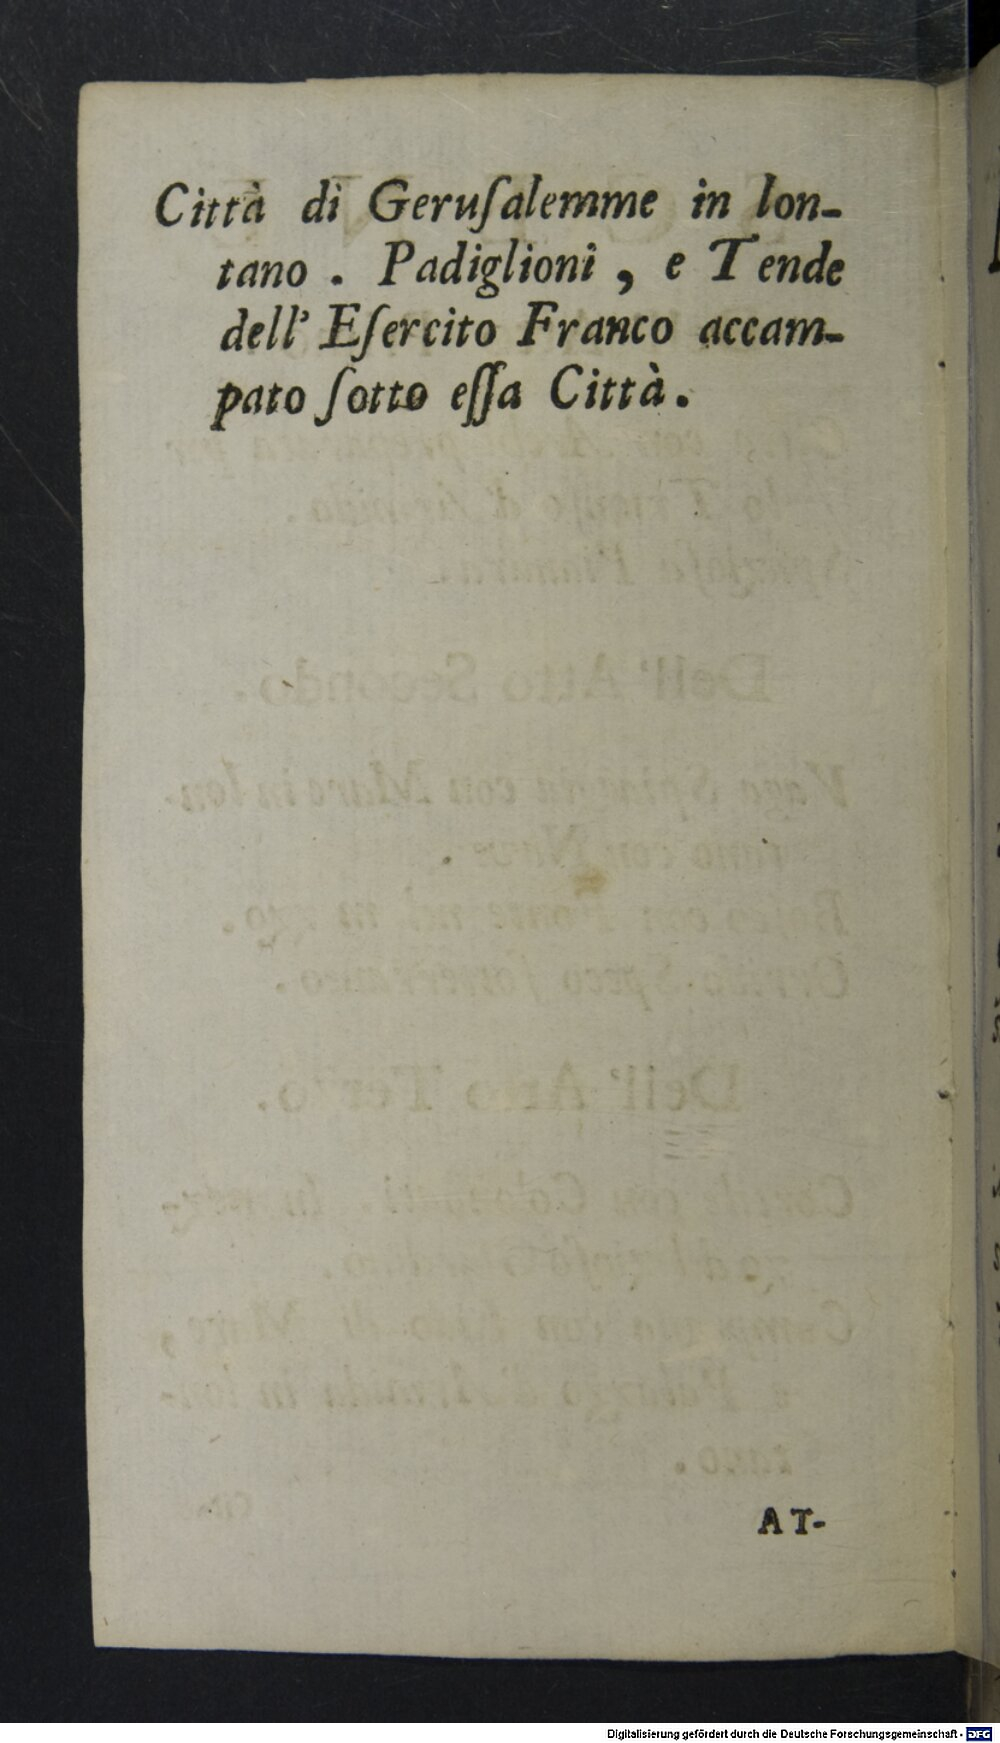 Città di Geruſalemme in lon-
tano . Padiglioni , e Tende
dell' Eſercito Franco accam-
pato ſotto eſſa Città .
AT-
Digitalisierung gefördert durch die Deutsche Forschungsgemeinschaft - DFG